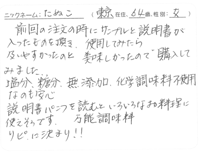 ニックネーム: たぬこ (東京 在住, 64歳, 性別: 女)
前回の注文の時にサンプルと説明書が
入ったものを頂き、使用してみたら
使いやすかったのと美味しかったので購入して
みました。
塩分、糖分、無添加、化学調味料不使用
なのも安心
説明書パンフを読むといろいろなお料理に
使えそうです。万能調味料
リピに決まり!!